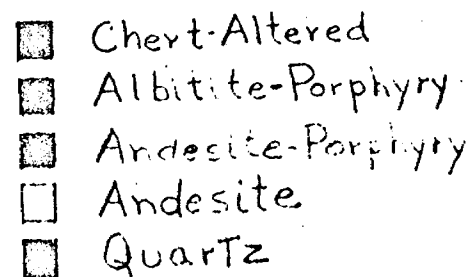 Chert-Altered
Albitite-Porphyry
Andesite-Porphyry
Andesite
QuarTz